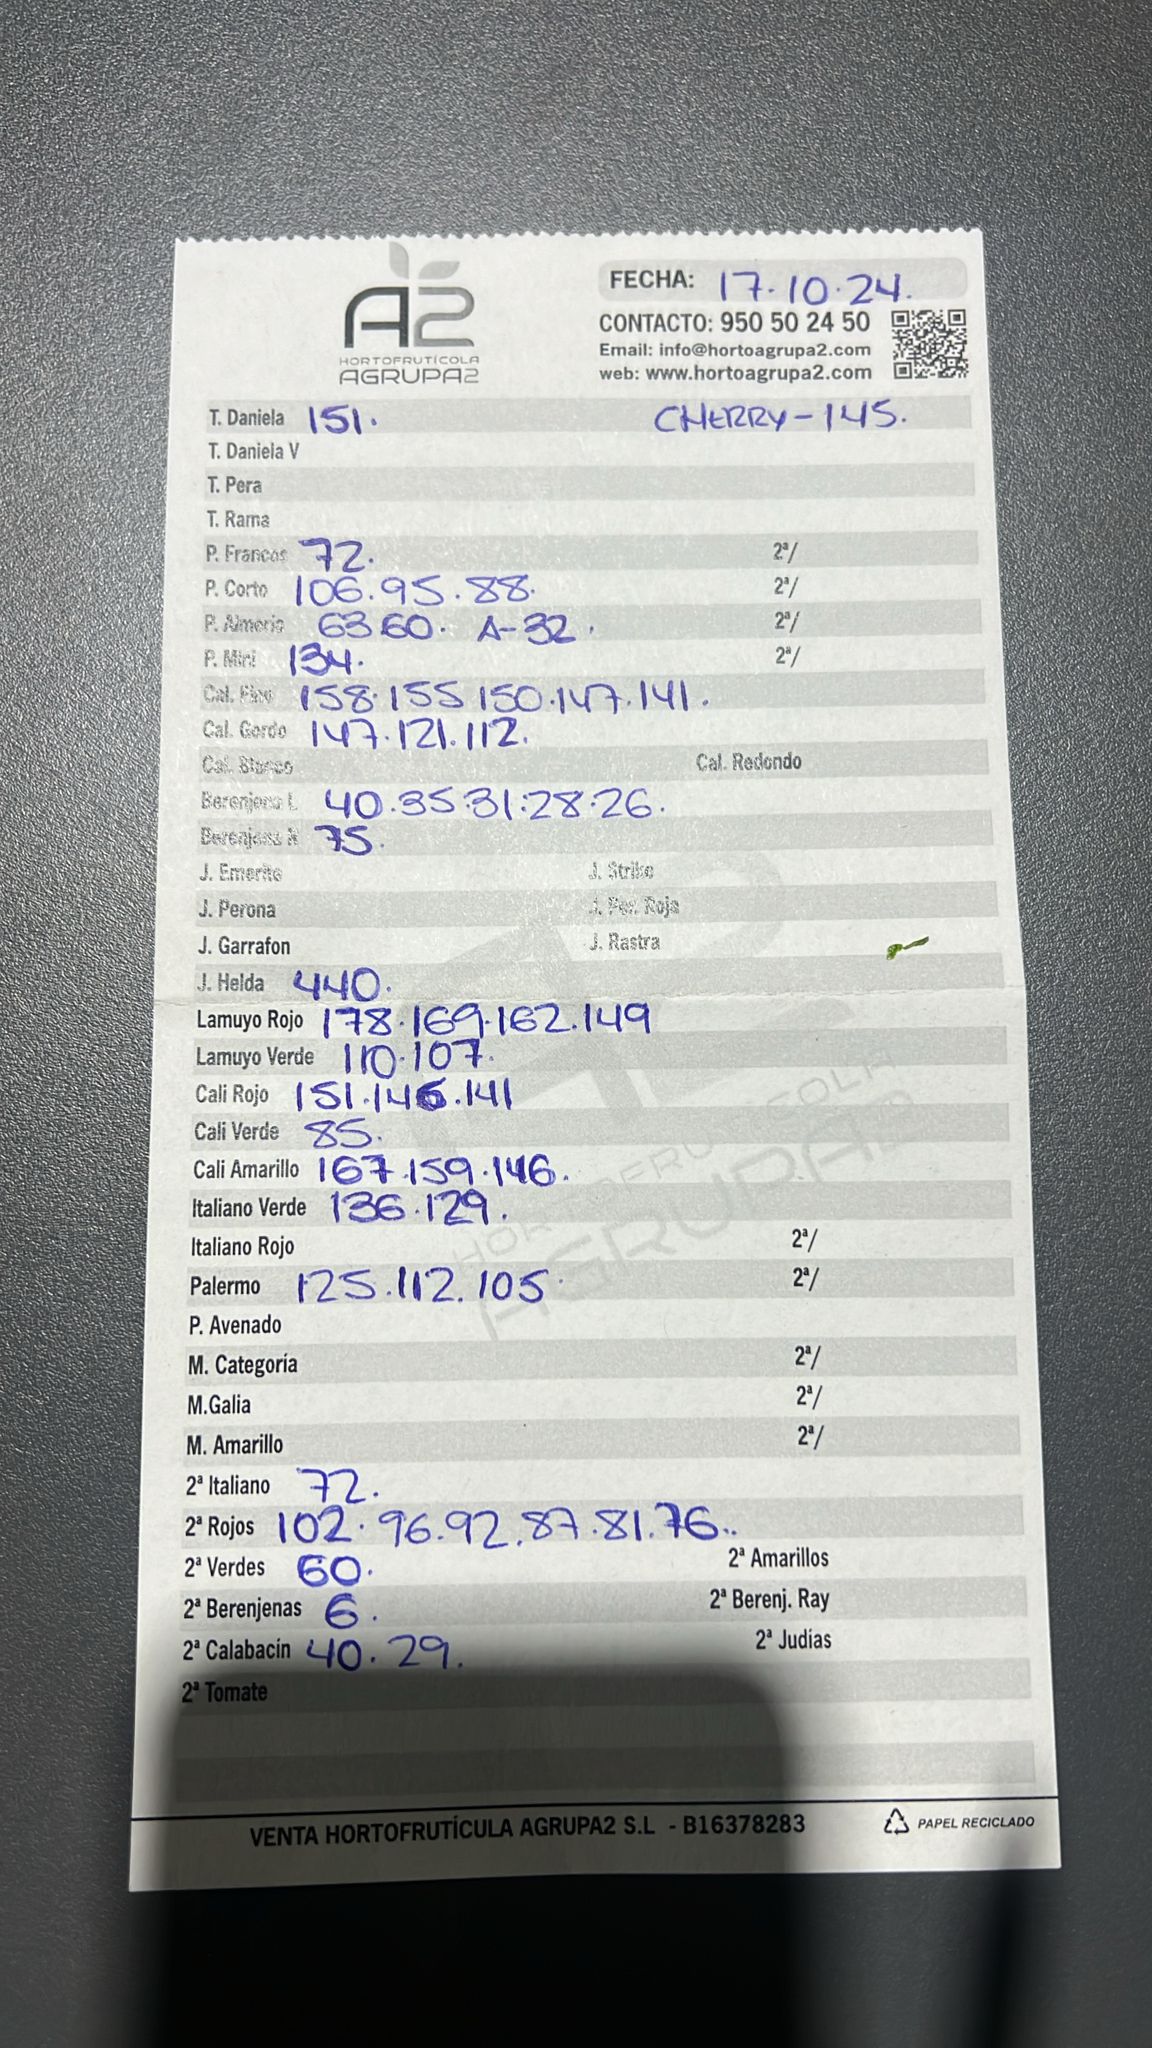 A2
HORTOFRUTÍCOLA
AGRUPA2
FECHA: 17.10.24.
CONTACTO: 950 50 24 50
Email: info@hortoagrupa2.com
web: www.hortoagrupa2.com
T. Daniela 151. CHERRY-145.
T. Daniela V
T. Pera
T. Rama
P. Frances 72. 2ª/
P. Corto 106.95.88. 2ª/
P. Almeria 63.60. A-32. 2ª/
P. Mini 134. 2ª/
Cal. Fino 158.155 150.147.141.
Cal. Gordo 147.121.112.
Cal. Blanco Cal. Redondo
Berenjena L 40.35.31.28.26.
Berenjena R 75.
J. Emerite J. Strike
J. Perona J. Per. Roja
J. Garrafon J. Rastra
J. Helda 440.
Lamuyo Rojo 178.169.162.149
Lamuyo Verde 110.107.
Cali Rojo 151.146.141
Cali Verde 85.
Cali Amarillo 167.159.146.
Italiano Verde 136.129.
Italiano Rojo 2ª/
Palermo 125.112.105. 2ª/
P. Avenado
M. Categoría 2ª/
M.Galia 2ª/
M. Amarillo 2ª/
2ª Italiano 72.
2ª Rojos 102.96.92.87.81.76..
2ª Verdes 60. 2ª Amarillos
2ª Berenjenas 6. 2ª Berenj. Ray
2ª Calabacín 40.29. 2ª Judías
2ª Tomate
VENTA HORTOFRUTÍCULA AGRUPA2 S.L - B16378283
PAPEL RECICLADO